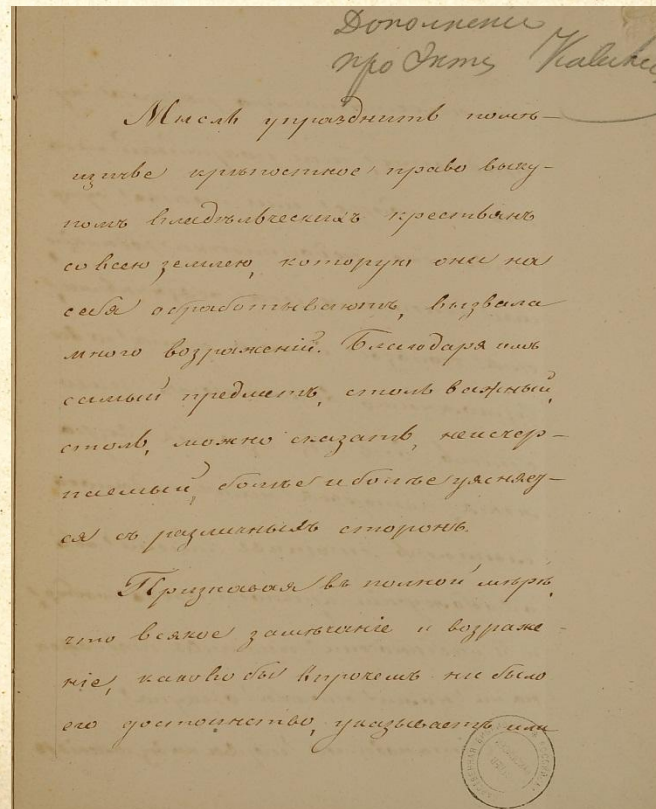 Дополнение
про Эктъ Кавели
Мысль упразднить помѣ-
щичье крѣпостное право выку-
помъ владѣльческихъ крестьянъ
со всею землею, которую они на
себя обработываютъ, вызвала
много возраженій. Благодаря имъ
самый предметъ, столь важный,
столь, можно сказать, неисчер-
паемый, болѣе и болѣе уясняет-
ся съ различныхъ сторонъ.
Признавая въ полной мѣрѣ,
что всякое замѣчаніе и возраже-
ніе, каково бы впрочемъ ни было
его достоинство, указываетъ или